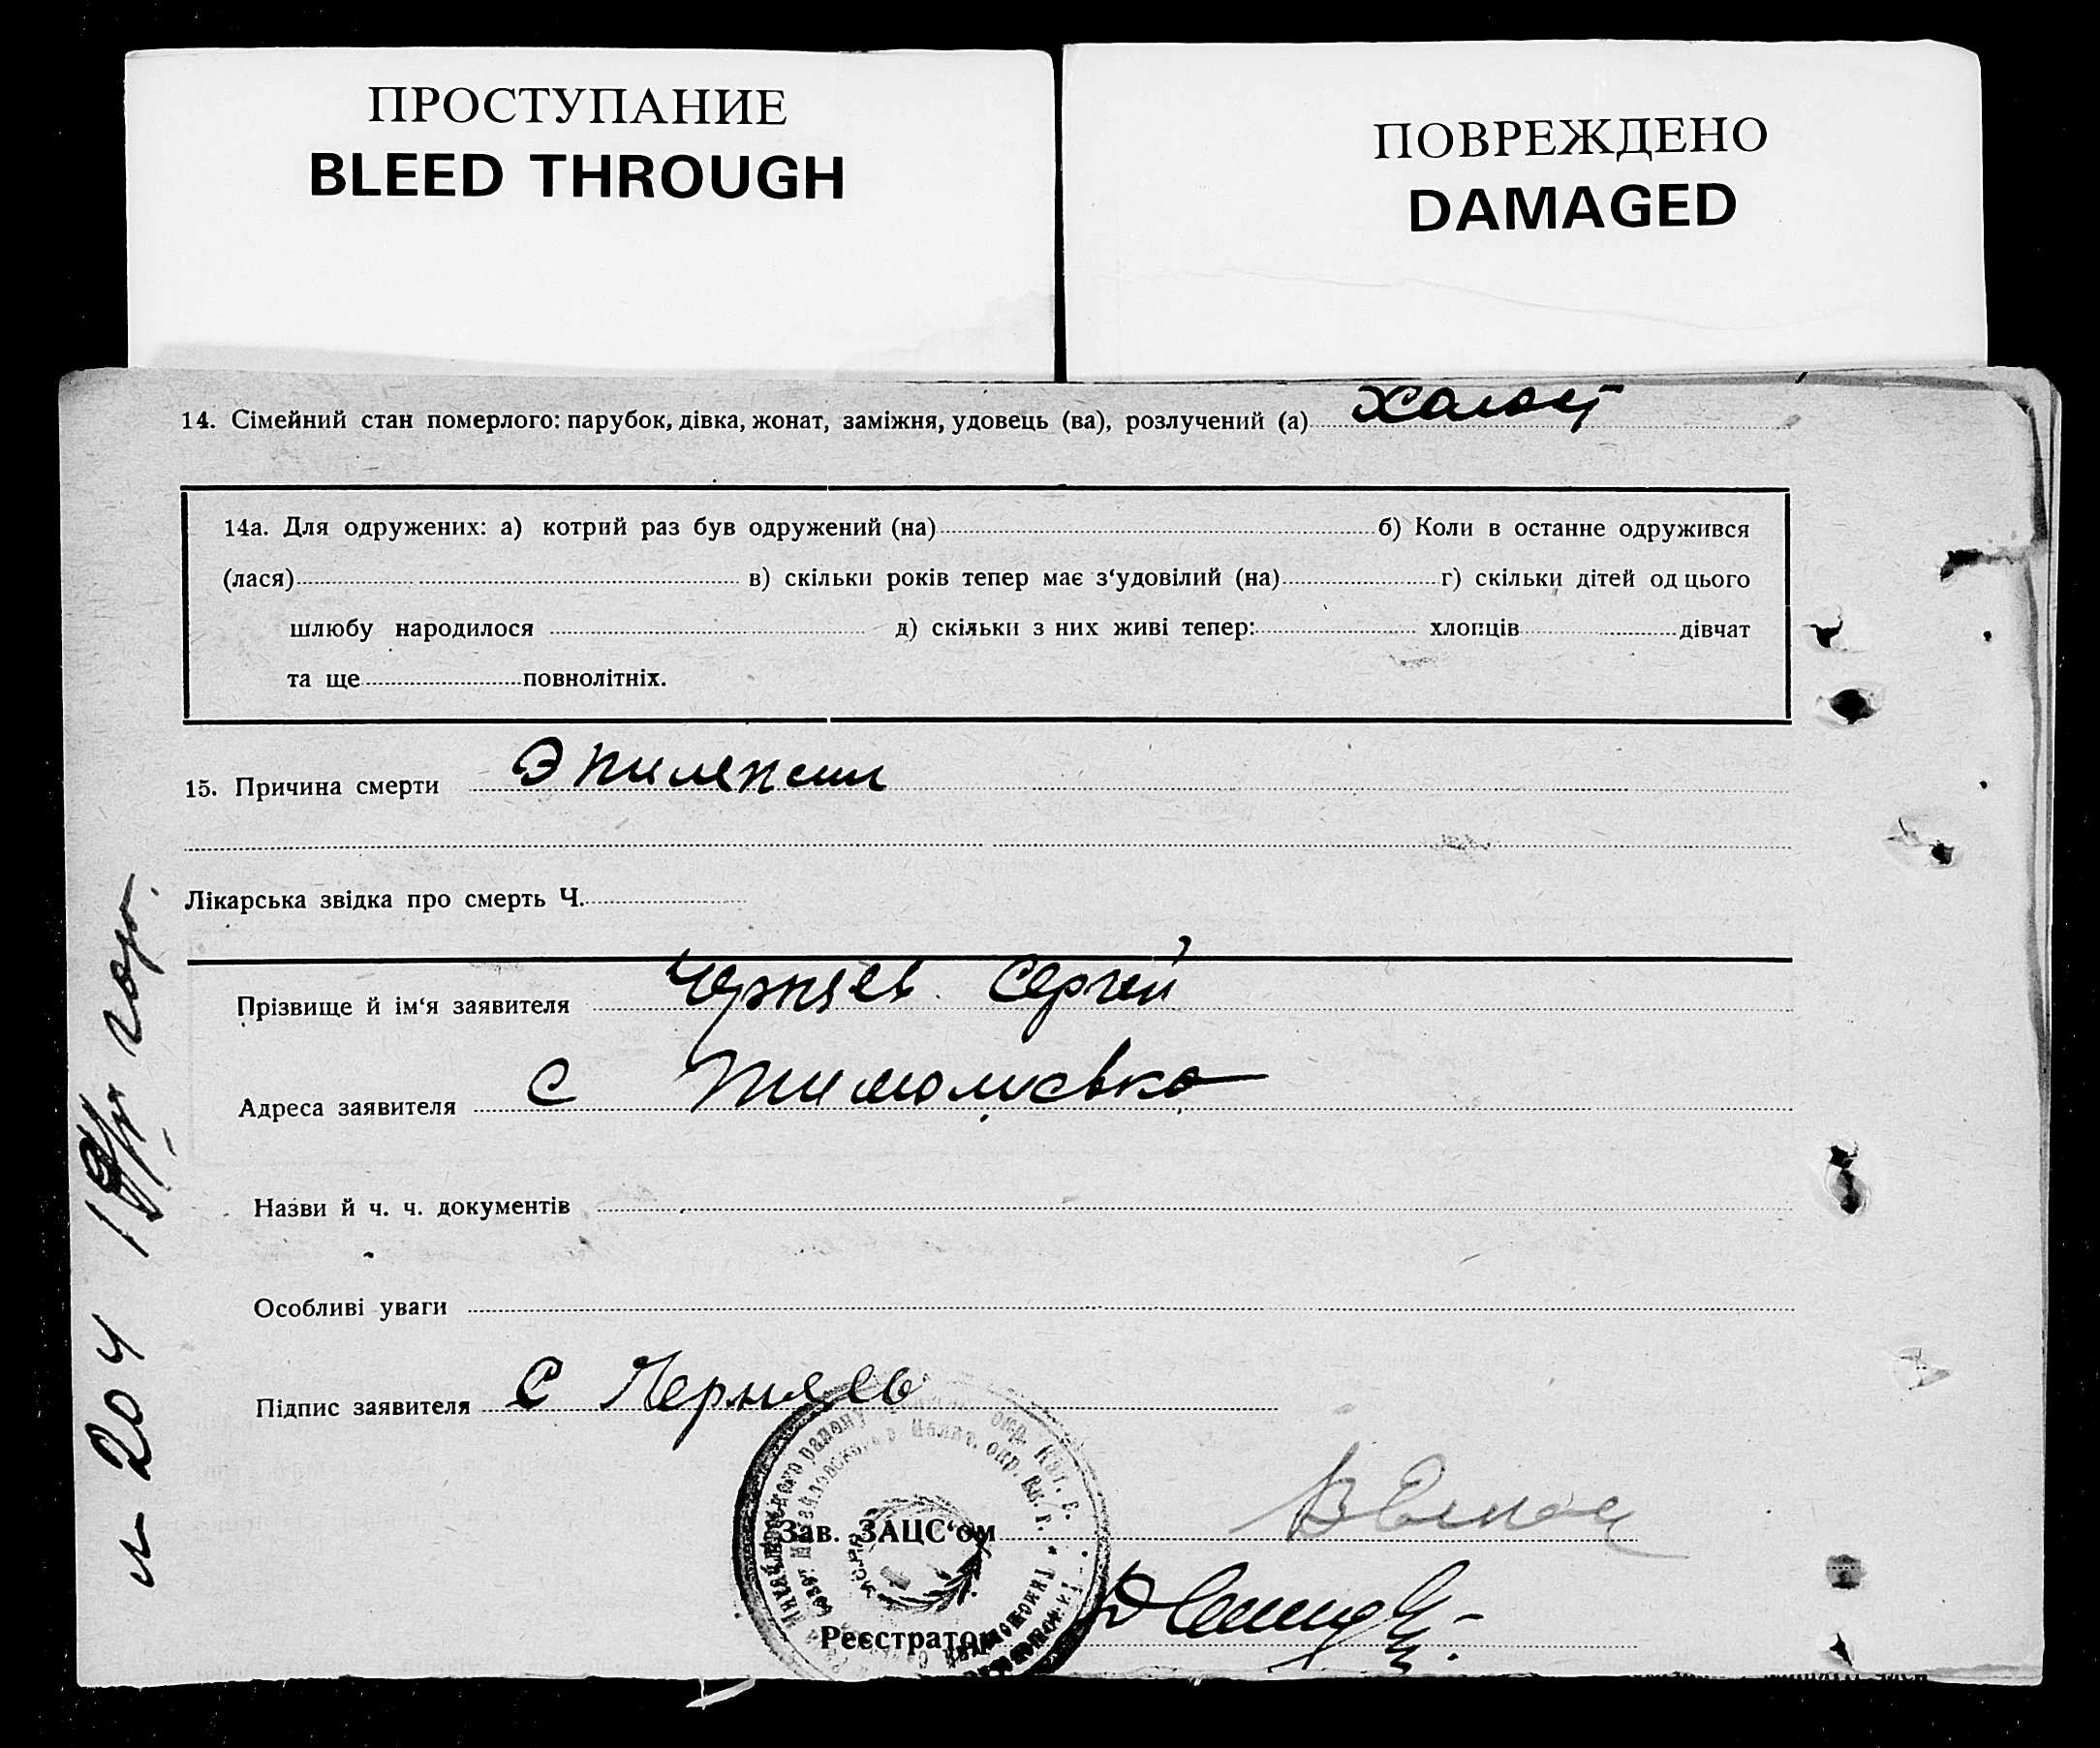 ПРОСТУПАНИЕ
BLEED THROUGH
ПОВРЕЖДЕНО
DAMAGED
14. Сімейний стан померлого: парубок, дівка, жонат, заміжня, удовець (ва), розлучений (а) Холост
14а. Для одружених: а) котрий раз був одружений (на) б) Коли в останне одружився
(лася) в) скільки років тепер має з‘удовілий (на) г) скільки дітей од цього
шлюбу народилося д) скільки з них живі тепер: хлопців дівчат
та ще повнолітніх.
15. Причина смерти Эпилепсии
Лікарська звідка про смерть Ч.
Прізвище й ім‘я заявителя Черняев Сергей
Адреса заявителя С Тимошовка
Назви й ч. ч. документів
Особливі уваги
Підпис заявителя С Черняев
Зав. ЗАЦС‘ом
Реєстратор
204